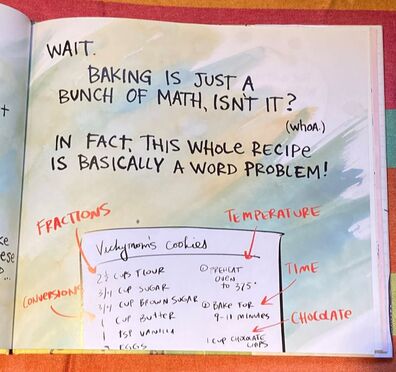 WAIT.
BAKING IS JUST A
BUNCH OF MATH, ISN'T IT?
(WHOA.)
IN FACT, THIS WHOLE RECIPE
IS BASICALLY A WORD PROBLEM!
FRACTIONS
TEMPERATURE
CONVERSIONS
TIME
CHOCOLATE
Vickymom's Cookies
CUPS FLOUR
3/4 CUP SUGAR
3/4 CUP BROWN SUGAR
1 CUP BUTTER
1 TSP VANILLA
2 EGGS
① PREHEAT
OVEN
TO 375°
② BAKE FOR
9-11 MINUTES
1 CUP CHOCOLATE
CHIPS